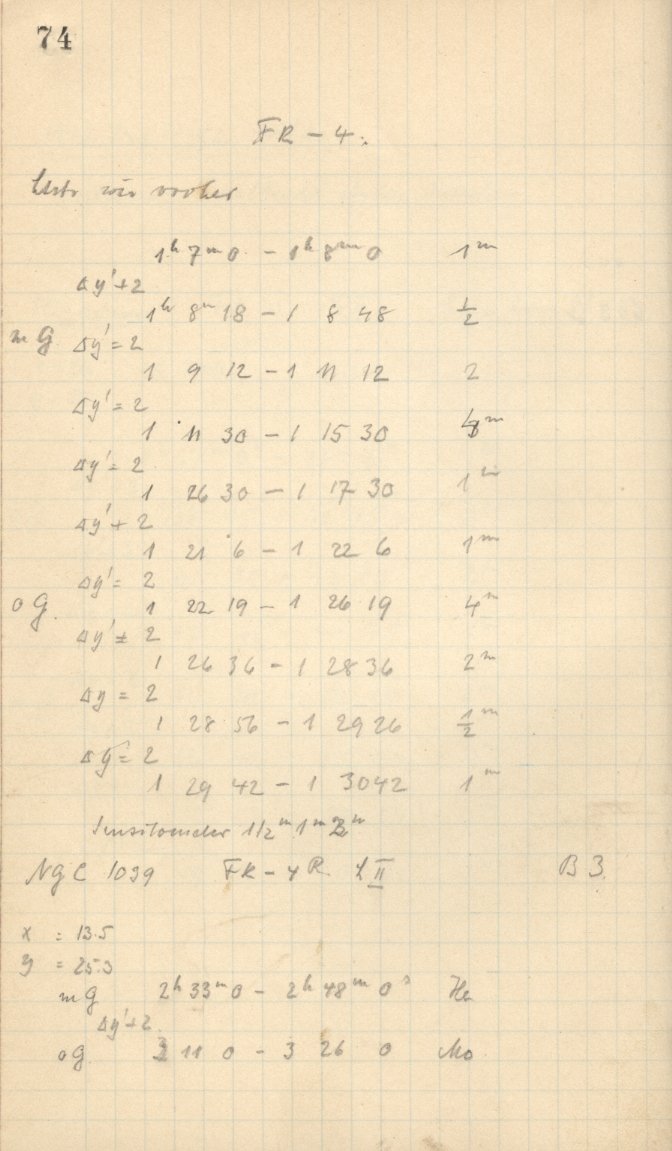 74
FR - 4.
wie vorher
1h 7m 0 - 1h 8m 0 1m
Δy' + 2
1h 8m 18 - 1 8 48 1/2
mG Δy' = 2
1 9 12 - 1 11 12 2
Δy' = 2
1 11 30 - 1 15 30 4m
Δy' = 2
1 26 30 - 1 17 30 1m
Δy' + 2
1 21 6 - 1 22 6 1m
Δy' = 2
oG. 1 22 19 - 1 26 19 4m
Δy' = 2
1 26 36 - 1 28 36 2m
Δy = 2
1 28 56 - 1 29 26 1/2m
Δy = 2
1 29 42 - 1 30 42 1m
Sensitometer 1/2m 1m 2m
NGC 1039 FR - 4R LII B 3.
x = 13.5
y = 25.3
mG 2h 33m 0 - 2h 48m 0s He
Δy' + 2.
oG. 3 11 0 - 3 26 0 Mo